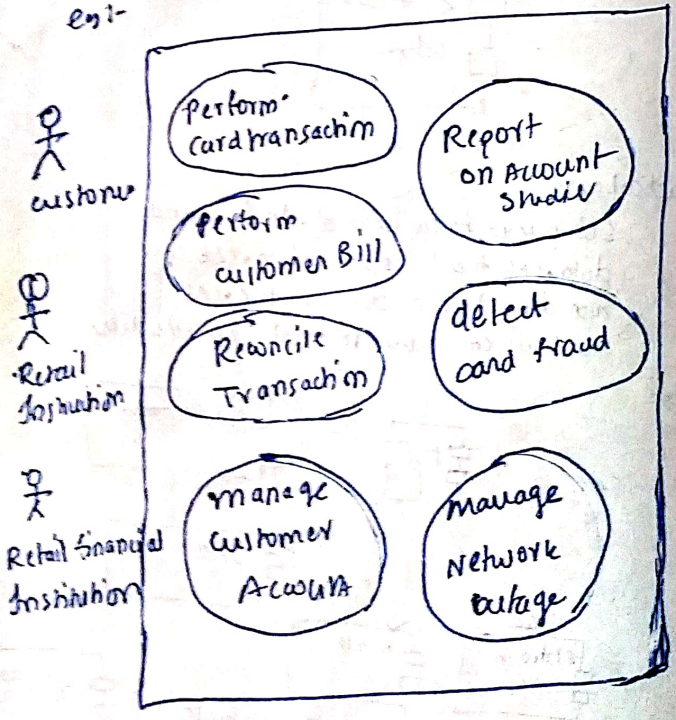 eg:-
customer
Retail
Institution
Retail financial
Institution
Perform
Card transaction
Perform
customer Bill
Reconcile
Transaction
manage
customer
Account
Report
on Account
Studies
detect
card fraud
manage
Network
outage